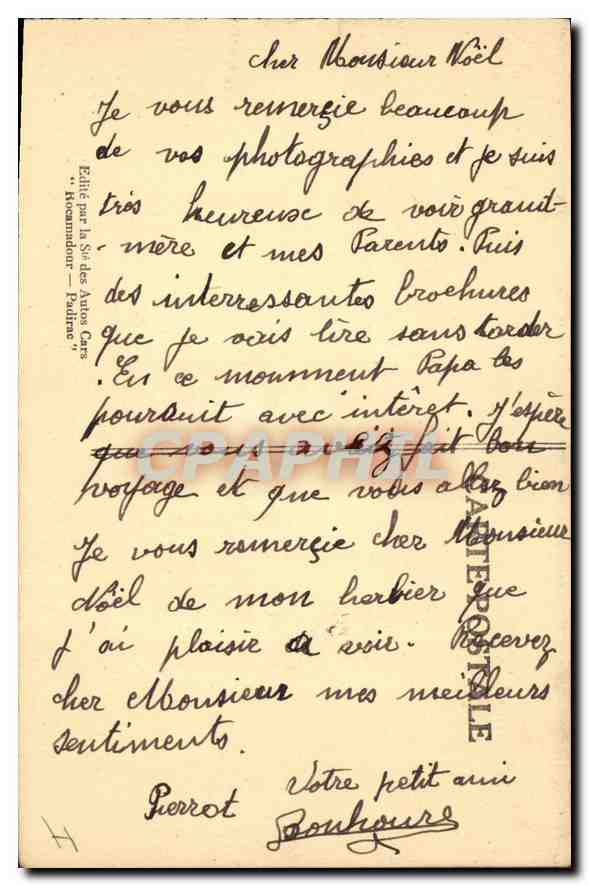 cher Monsieur Noël
Je vous remerçie beaucoup
de vos photographies et je suis
très heureuse de voir grand-
-mère et mes Parents. Puis
des interressantes brochures
que je vais lire sans tarder
. En ce momment Papa les
pourduit avec intêret. J'espère
que vous avez fait bon
voyage et que vous allez bien
Je vous remerçie cher Monsieur
Noël de mon herbier que
j'ai plaisir à voir. Recevez
cher Monsieur mes meilleurs
sentiments.
Votre petit ami
Pierrot Bonhoure
Edité par la Sté des Autos Cars
" Rocamadour — Padirac "
CARTE POSTALE
CPAPHIL